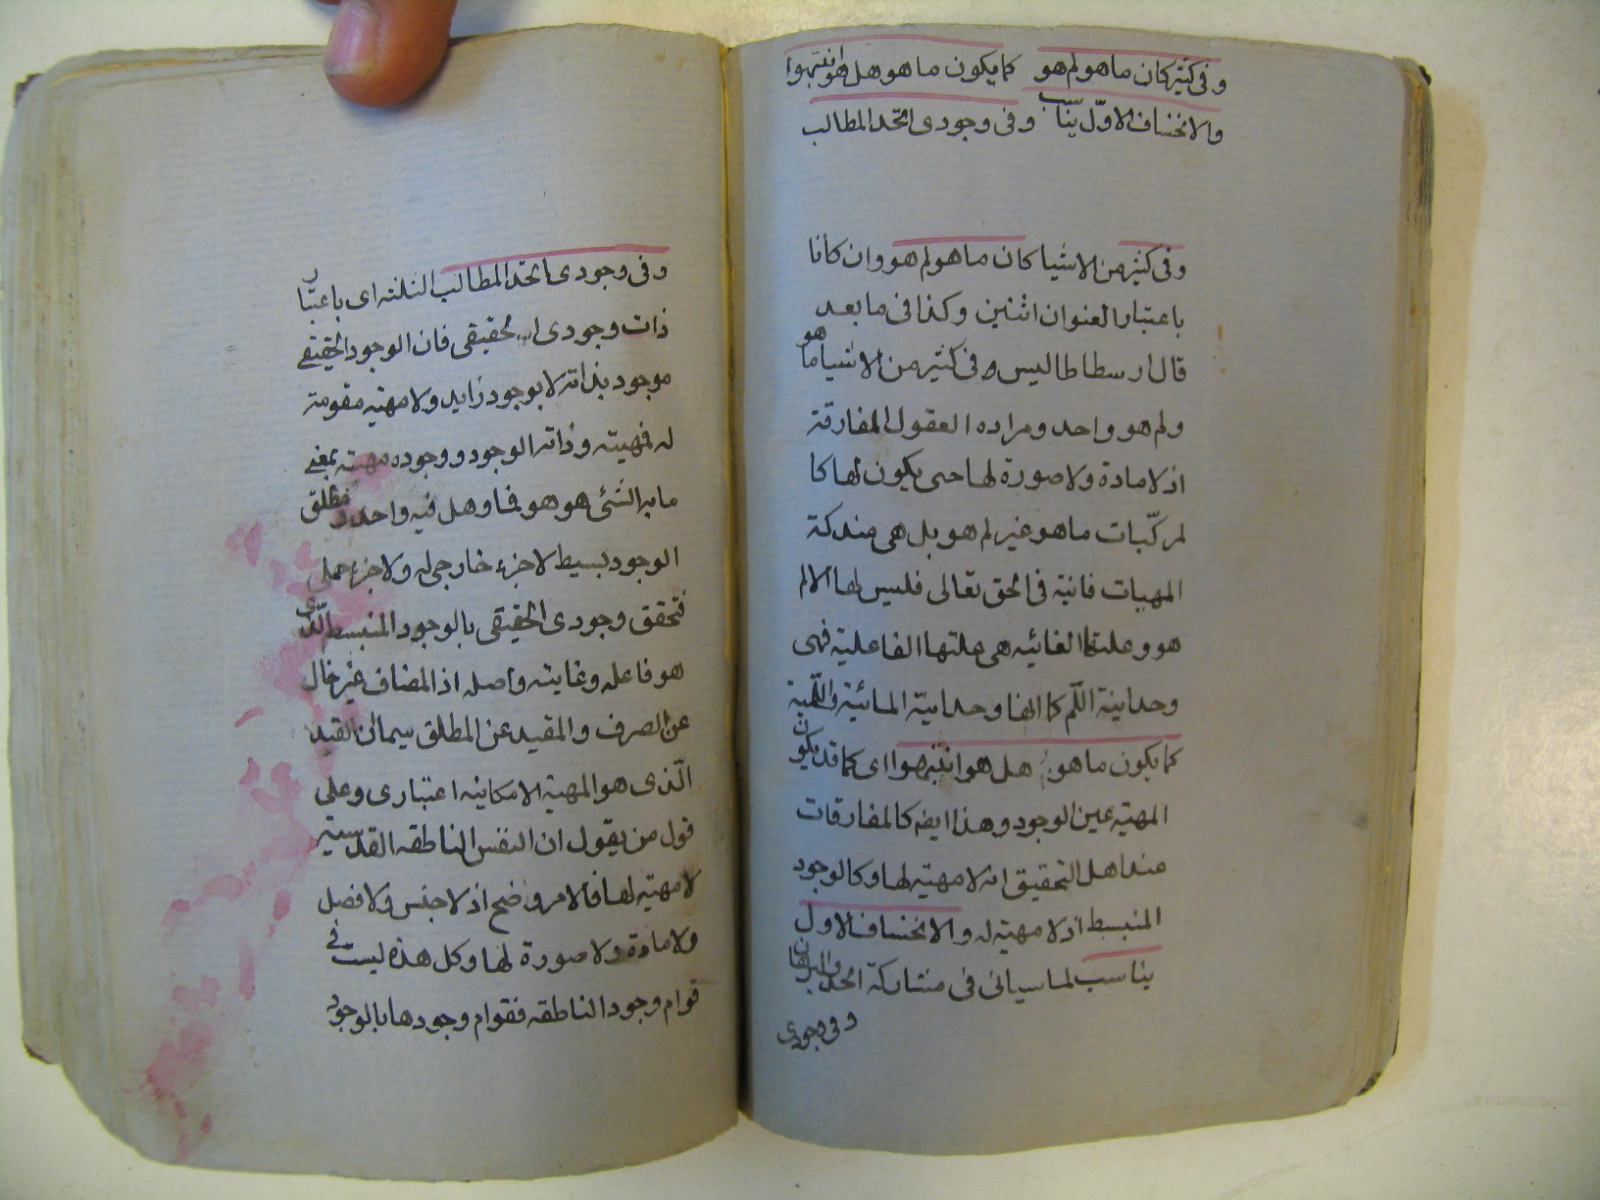 وفى كثير كان ما هو لم هو كما يكون ما هو هل هو انتبهوا
والانخساف الاوّل يناسب وفى وجودى اتحد المطالب
وفى كثير من الاشيا كان ما هو لم هو وان كانا
باعتبار العنوان اثنين وكذا فى ما بعد
قال ارسطاطاليس وفى كثير من الاشيا ما هو
ولم هو واحد ومراده العقول المفارقة
اذ لا مادة ولا صورة لها حتى يكون لها كا
لمركّبات ما هو غير لم هو بل هى مندكة
المهيات فانية فى الحق تعالى فليس لها الا لم
هو وعلتها الغائيه هى علتها الفاعلية فهى
وحدانية اللّم كما انها وحدانيّة المائية واللّمية
كما يكون ما هو هل هو انتبهوا اى كما قد يكون
المهيّه عين الوجود وهذا ايضه كالمفارقات
عند اهل التحقيق انه لا مهيّه لها وكالوجود
المنبسط اذ لا مهية له والانخساف الاول
يناسب لما سياتى فى مشاركة الحد والبرهان
وفى وجودى
وفى وجودى اتحد المطالب الثلثه اى باعتبار
ذات وجودى الحقيقى فان الوجود الحقيقى
موجود بذاته لا بوجود زايد ولا مهيّه مقومة
له فمهيته وذاته الوجود ووجوده مهيته بمعنى
ما به الشئ هو هو فما وهل فيه واحد ومطلق
الوجود بسيط لا جزء خارجى له ولا جزء حملى
فتحقق وجودى الحقيقى بالوجود المنبسط الّذى
هو فاعله وغايته واصله اذ المضاف غير خال
عن الصرف والمقيد عن المطلق سيما ان القيد
الّذى هو المهيّة الامكانيه اعتبارى وعلى
قول من يقول ان النفس الناطقه القدّسيّه
لا مهيّه لها فالامر واضح اذ لا جنس ولا فصل
ولا مادة ولا صورة لها وكل هذه ليست فى
قوام وجود الناطقه فقوام وجودها بالوجود